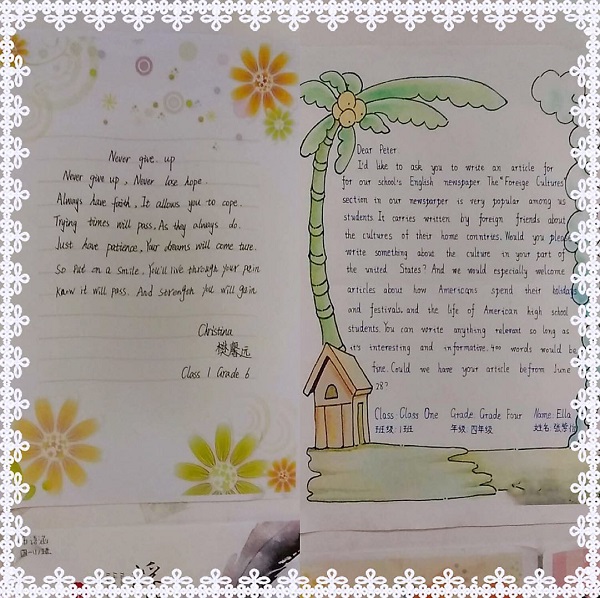 Never give up
Never give up, Never lose hope.
Always have faith, It allows you to cope.
Trying times will pass, As they always do.
Just have patience, Your dreams will come ture.
So put on a smile, You'll live through your pain
Know it will pass, And strength you will gain
Christina
樊馨远
Class 1 Grade 6
Dear Peter
I'd like to ask you to write an article for
for our school's English newspaper. The "Foreige Cultures
section in our newsparper is very popular among us
students. It carries written by foreign friends about
the cultures of their home conntries. Would you please
write something about the culture in your part of
the united States? And we would especially welcome
articles about how Americans spend their holidays
and festivals, and the life of American high school
students. You can write anything relevant so long as
it's interesting and informative. 400 words would be
fine. Could we have your article befrom June
28?
Class Class One Grade Grade Four Name Ella
班级: 1班 年级: 四年级 姓名: 张